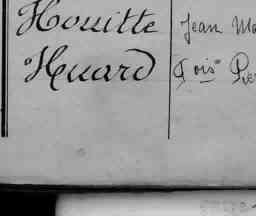 Houitte Jean Ma
Huard Fois Pie